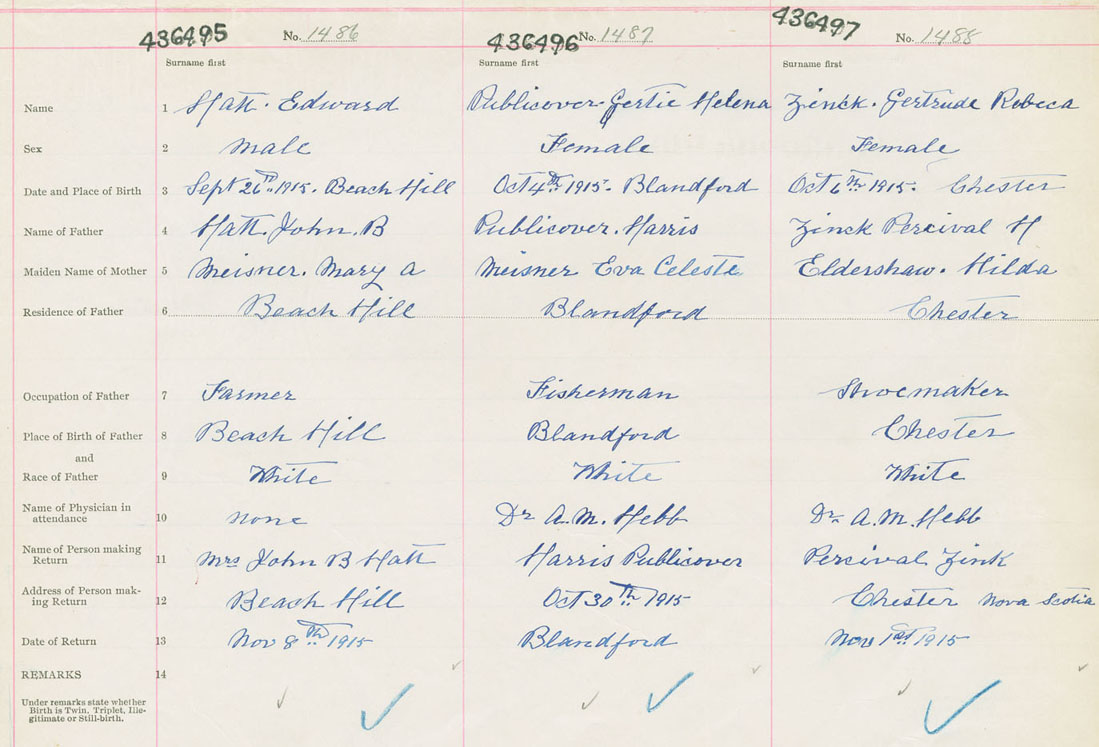 436495 No. 1486 436496 No. 1487 436497 No. 1488
Surname first Surname first Surname first
Name 1 Hatt. Edward Publicover. Gertie Helena Zinck. Gertrude Rebeca
Sex 2 Male Female Female
Date and Place of Birth 3 Sept 26th 1915. Beach Hill Oct 4th 1915. Blandford Oct 6th 1915. Chester
Name of Father 4 Hatt. John. B Publicover. Harris Zinck Percival H
Maiden Name of Mother 5 Meisner. Mary A Meisner Eva Celeste Eldershaw. Hilda
Residence of Father 6 Beach Hill Blandford Chester
Occupation of Father 7 Farmer Fisherman Shoemaker
Place of Birth of Father 8 Beach Hill Blandford Chester
and
Race of Father 9 White White White
Name of Physician in
attendance 10 none Dr A.M. Hebb Dr A.M. Hebb
Name of Person making
Return 11 Mrs John B Hatt Harris Publicover Percival Zink
Address of Person mak-
ing Return 12 Beach Hill Oct 30th 1915 Chester Nova Scotia
Date of Return 13 Nov 8th 1915 Blandford Nov 1st 1915
REMARKS 14
Under remarks state whether
Birth is Twin, Triplet, Ille-
gitimate or Still-birth.